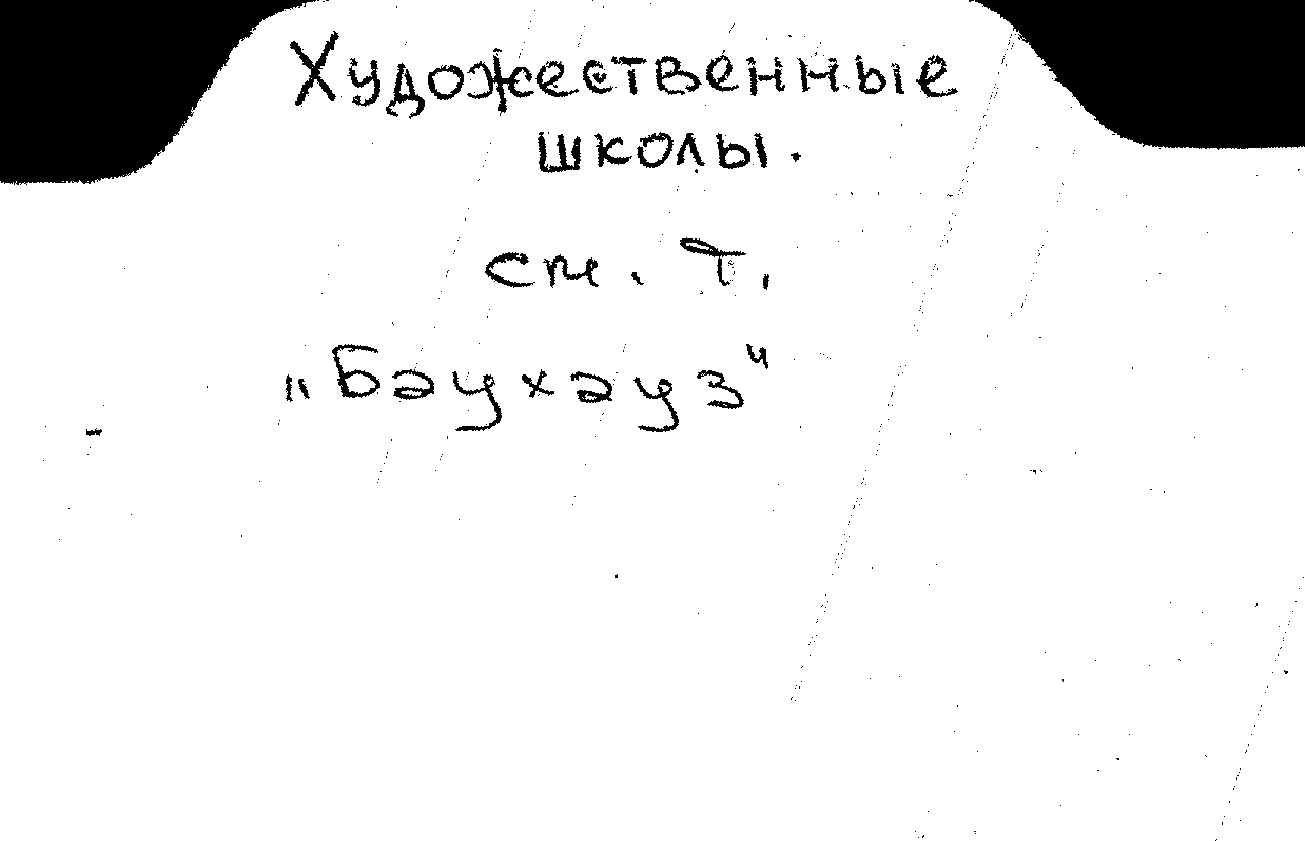 Художественные
школы.
см. т.
"Баухауз"